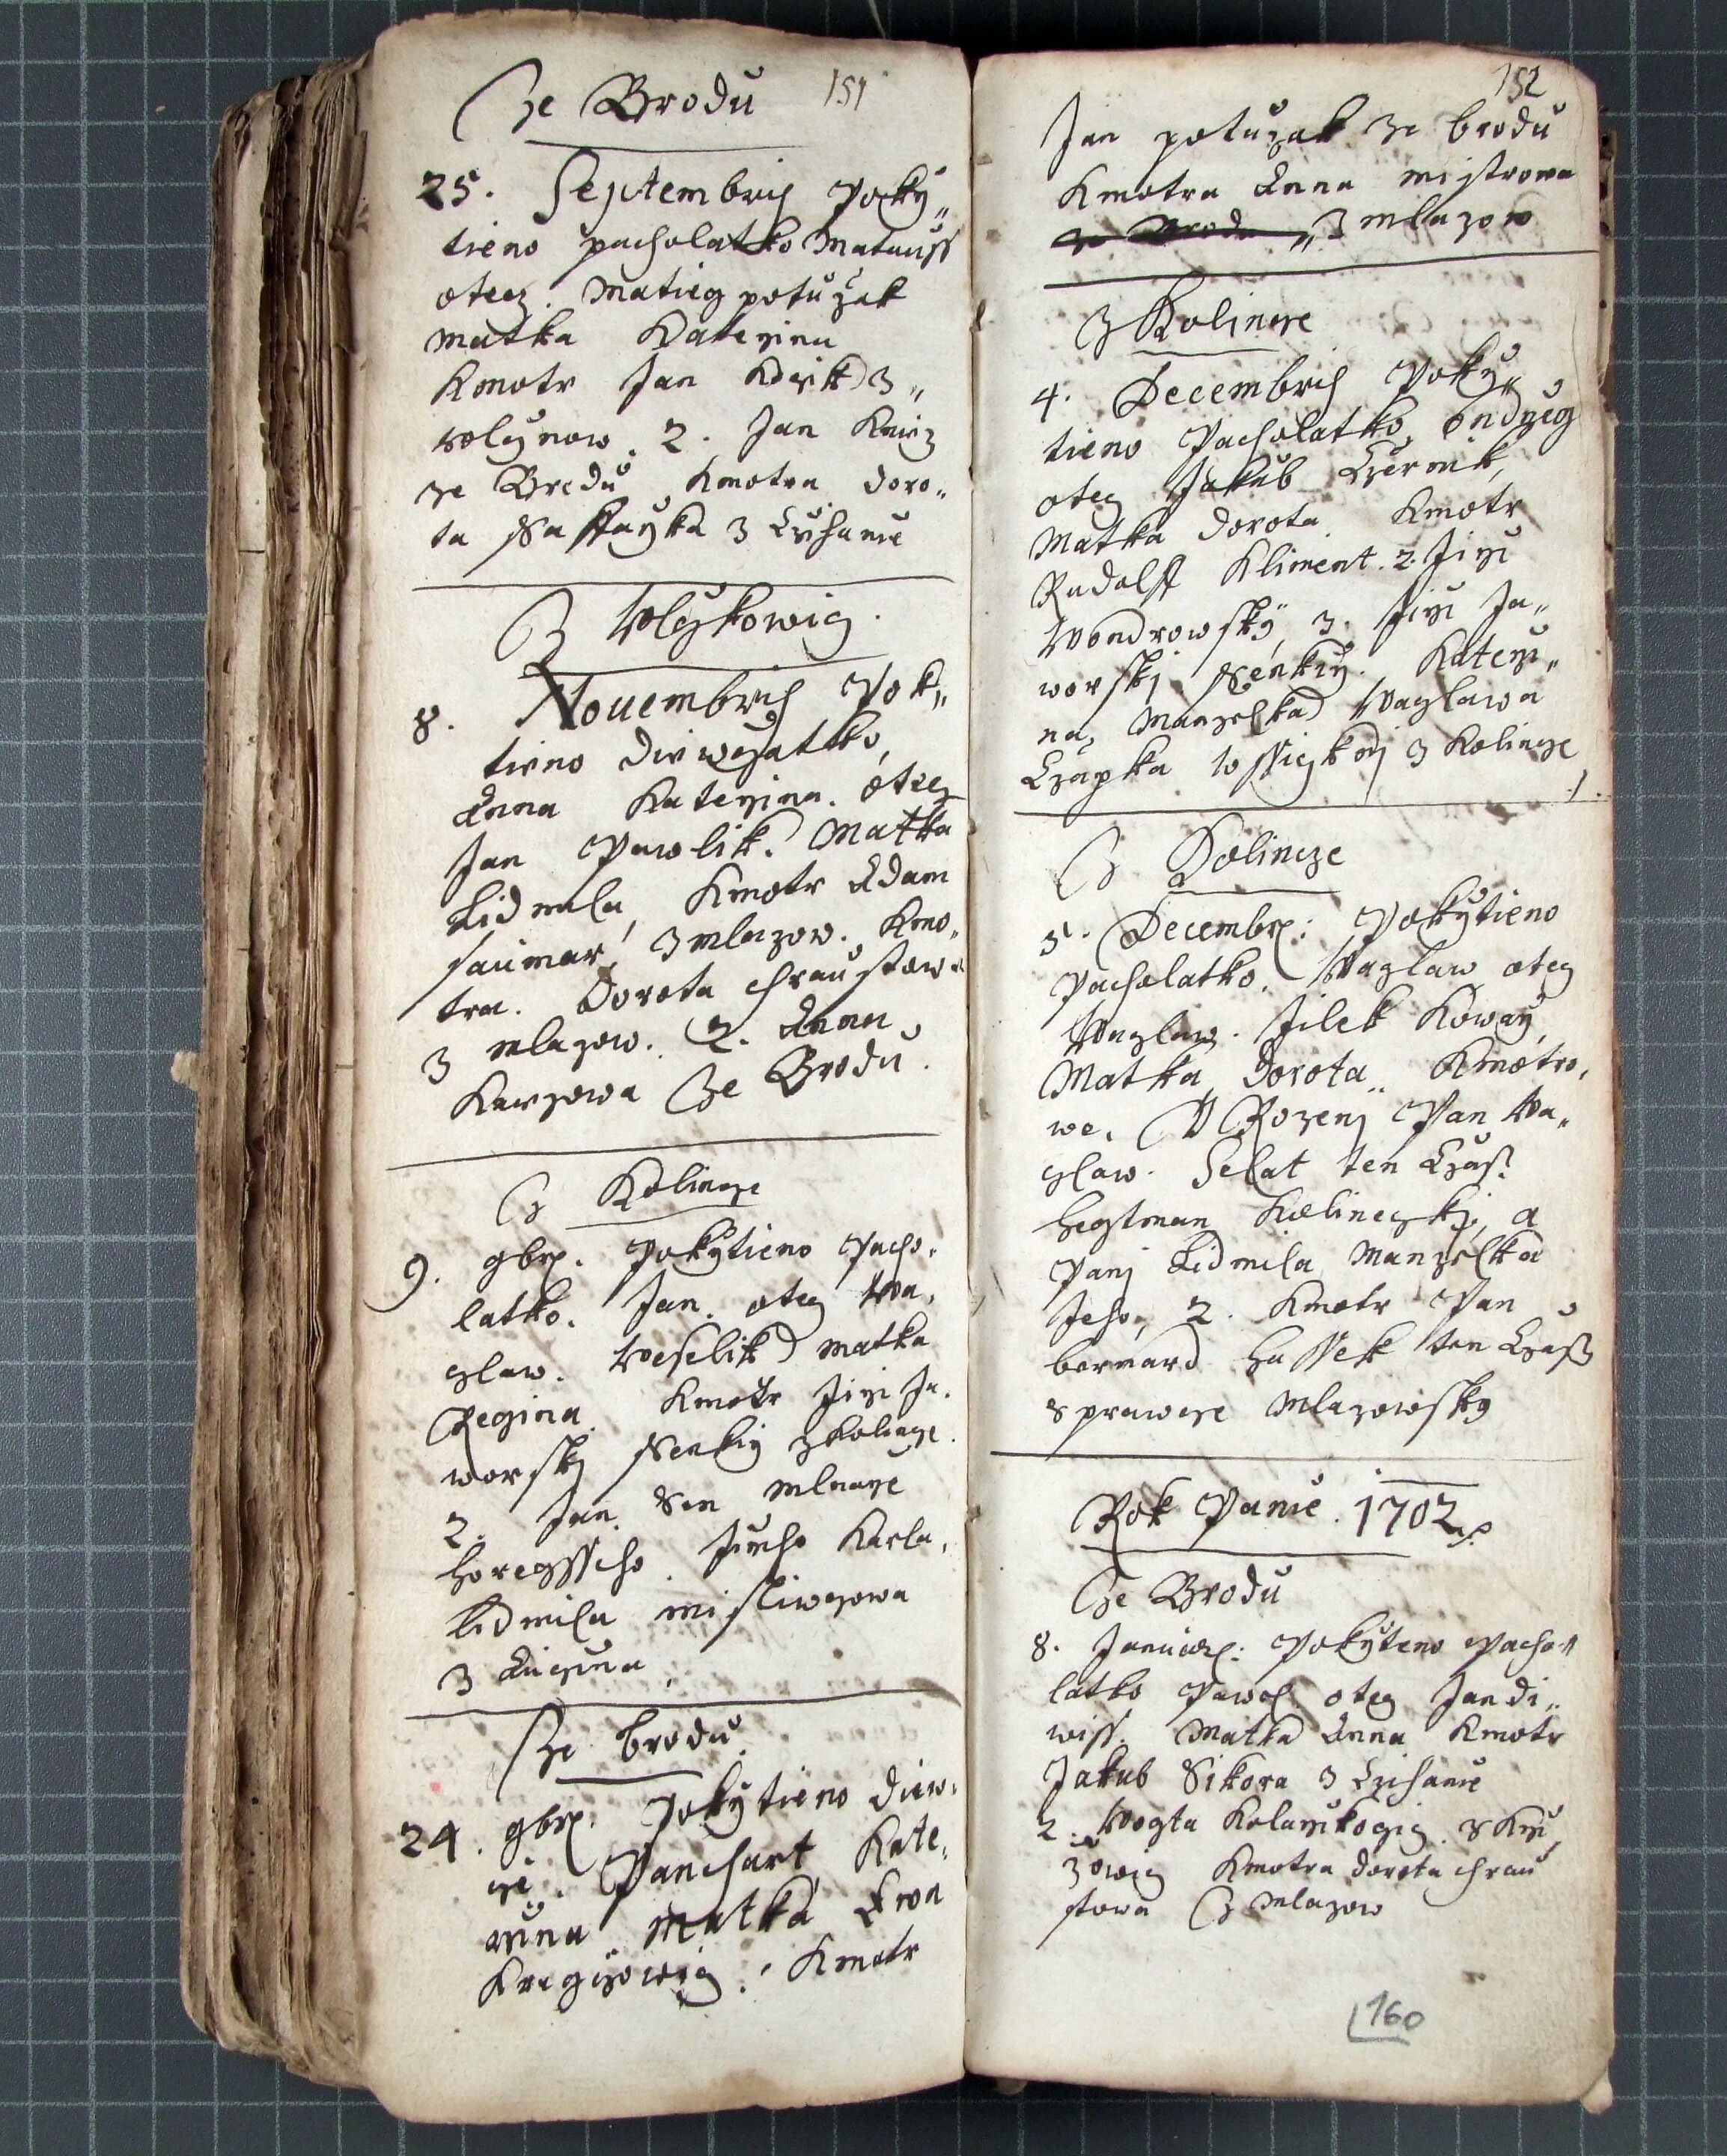 151
Ze Brodu
25. Septembris Poky„
tieno pacholatko Matauss
otecz. Matieg potužak
matka Kateržina
Kmotr Jan
wolynow. 2. Jan Knez
ze Brodu Kmotra doro„
ta z Czihanie
Z Wlczkowicz.
8. Nouembris Pok„
tieno diewczatko,
Anna Kateržina. otecz
Jan Pawlik. Matka
Lidmila, Kmotr Adam
saumar, z mlazow. Kmo„
tra. Dorota chraustowa
z mlazow. 2. Anna
Ze Brodu.
Z Kolincze
9. 9brs. Pokytieno Pacho„
latko. Jan. otecz Wa„
czlaw. Weselik matka
Regina. Kmotr Jirži Ja„
worsky z Kolincze.
2. Jan Sin mlnarže
horegssiho Karla,
Lidmila misliwczowa
z
Ze brodu.
24. 9brs. Pokytieno diew„
cze. Panchart Kate„
ržina Matka Ewa
Kmotr
152
Jan potužak ze brodu
Kmotra Anna mistrowa
ze Brodu „ z mlazow
Z Kolincze
4. Decembris Poky„
tieno Pacholatko, Ondržeg
otecz Jakub Czermak,
Matka dorota Kmotr
Rudolff Kliment. 2. Jirži
Wondrowsky, 3. Jirži Ja„
worsky. Katerži„
na, Manzelka Waczlawa
Czapka wssiczkni z Kolincze
Z Kolincze
5. Decembrs: Pokytieno
Pacholatko. Waczlaw otecz
Waczlaw. Jilek Kowarž
Matka, Dorota, Kmotro„
we. Pan Wa„
czlaw. Selat ten Czas
hegtman Kolineczky, a
Pani Lidmila Manzelka
Jeho, 2. Kmotr Pan
bernard hassek ten Czas
sprawcze Mlazowsky
Rok Panie. 1702
Ze Brodu
8. Januars: Pokyteno Pacho„
latko Pawel otecz Jan di„
wiss. Matka Anna Kmotr
Jakub Sikora z Czihanie
2. Wogta
Kmotra dorota chrau
stowa Z Mlazow
160